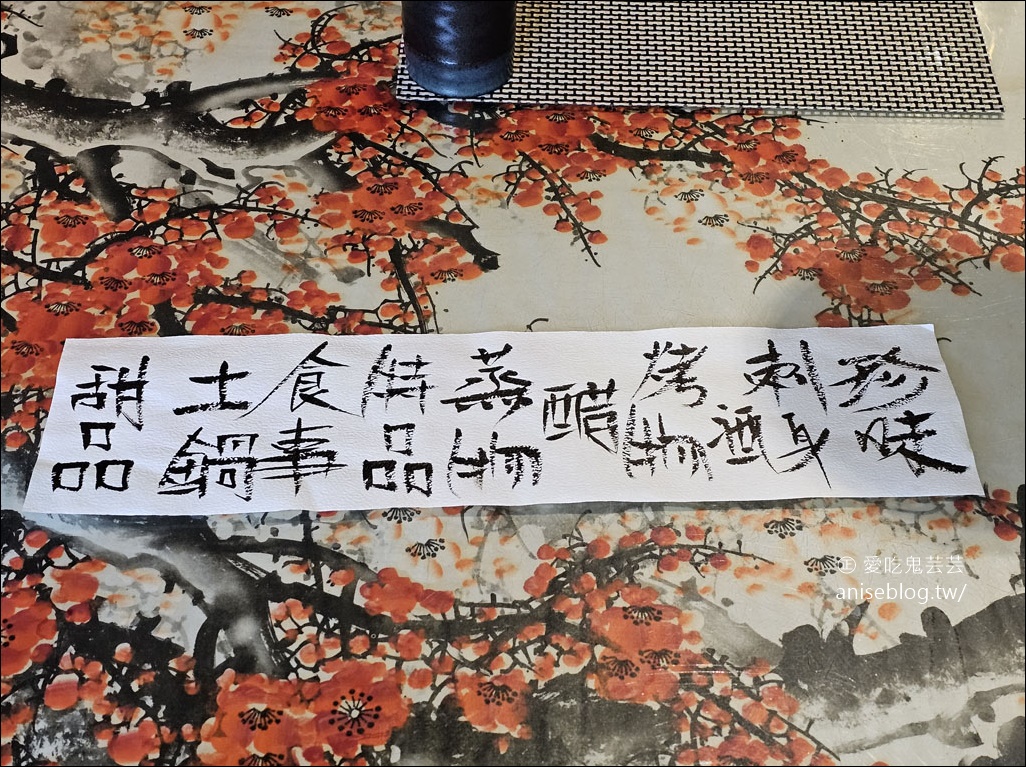 珍味
刺身
酒
烤物
醋
蒸物
特品
食事
土鍋
甜品
愛吃鬼芸芸
aniseblog.tw/